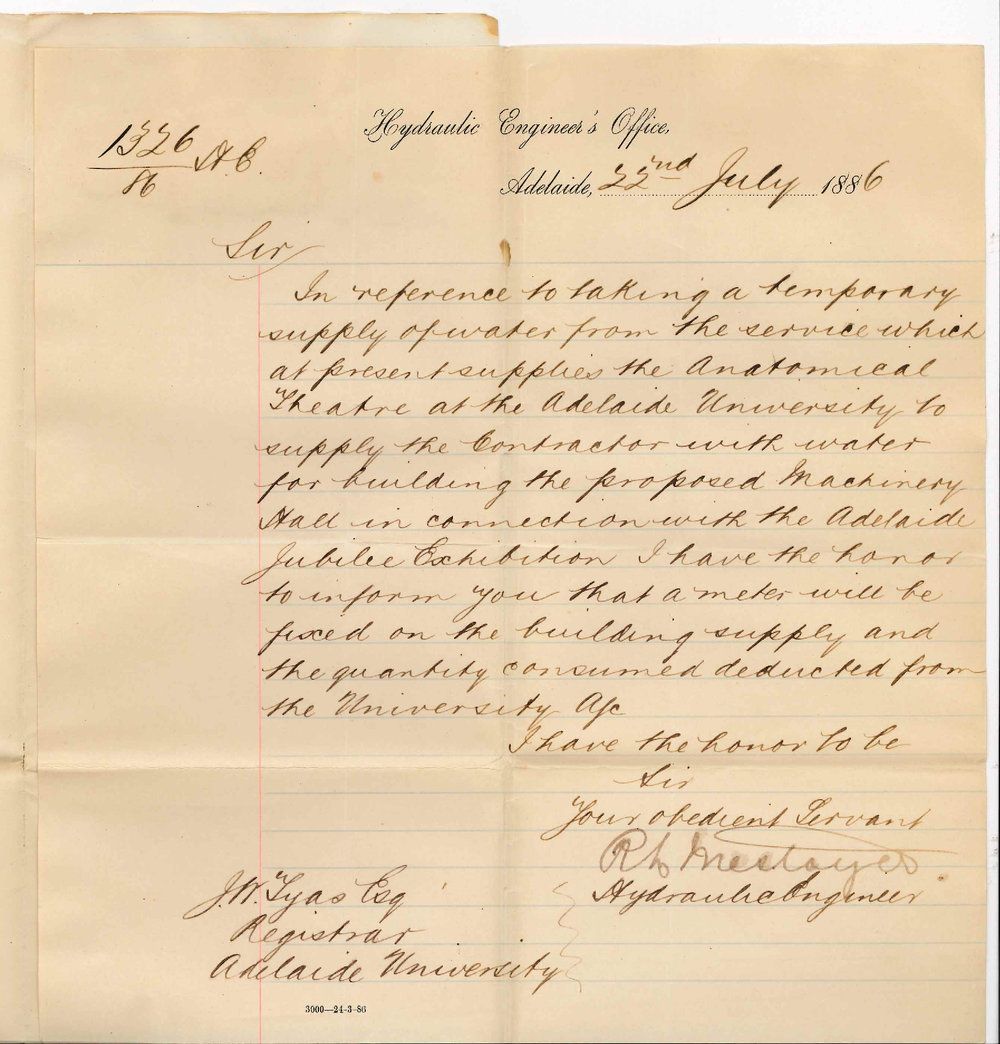 Hydraulic Engineer's Office,
1326 H.E.
86
Adelaide, 22nd July 1886
Sir
In reference to taking a temporary
supply of water from the service which
at present supplies the Anatomical
Theatre at the Adelaide University to
supply the Contractor with water
for building the proposed Machinery
Hall in connection with the Adelaide
Jubilee Exhibition I have the honor
to inform you that a meter will be
fixed on the building supply and
the quantity consumed deducted from
the University A/c
I have the honor to be
Sir
Your obedient Servant
Hydraulic Engineer
J.W. Tyas Esq
Registrar
Adelaide University
3000—24-3-86